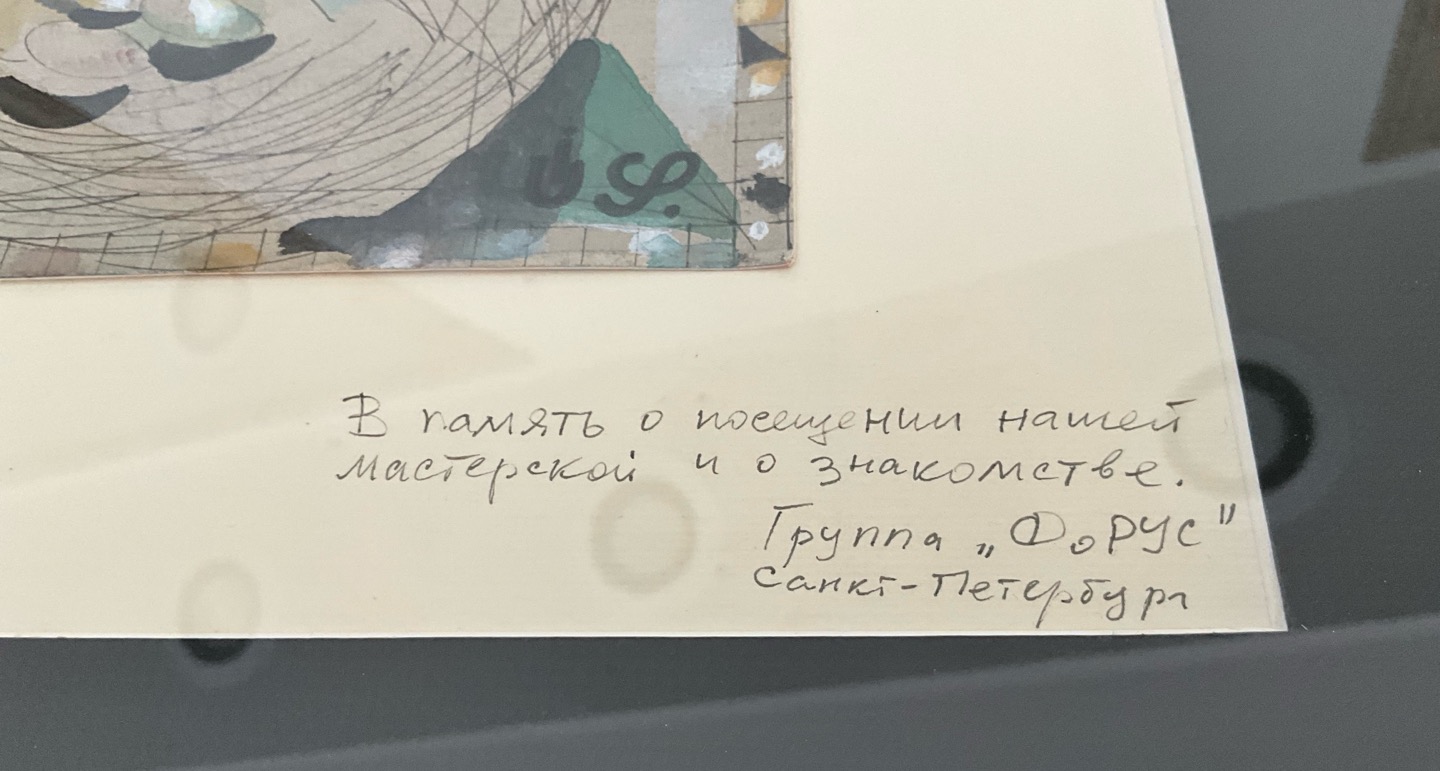 В память о посещении нашей
мастерской и о знакомстве.
Группа „ФоРУС"
Санкт-Петербург